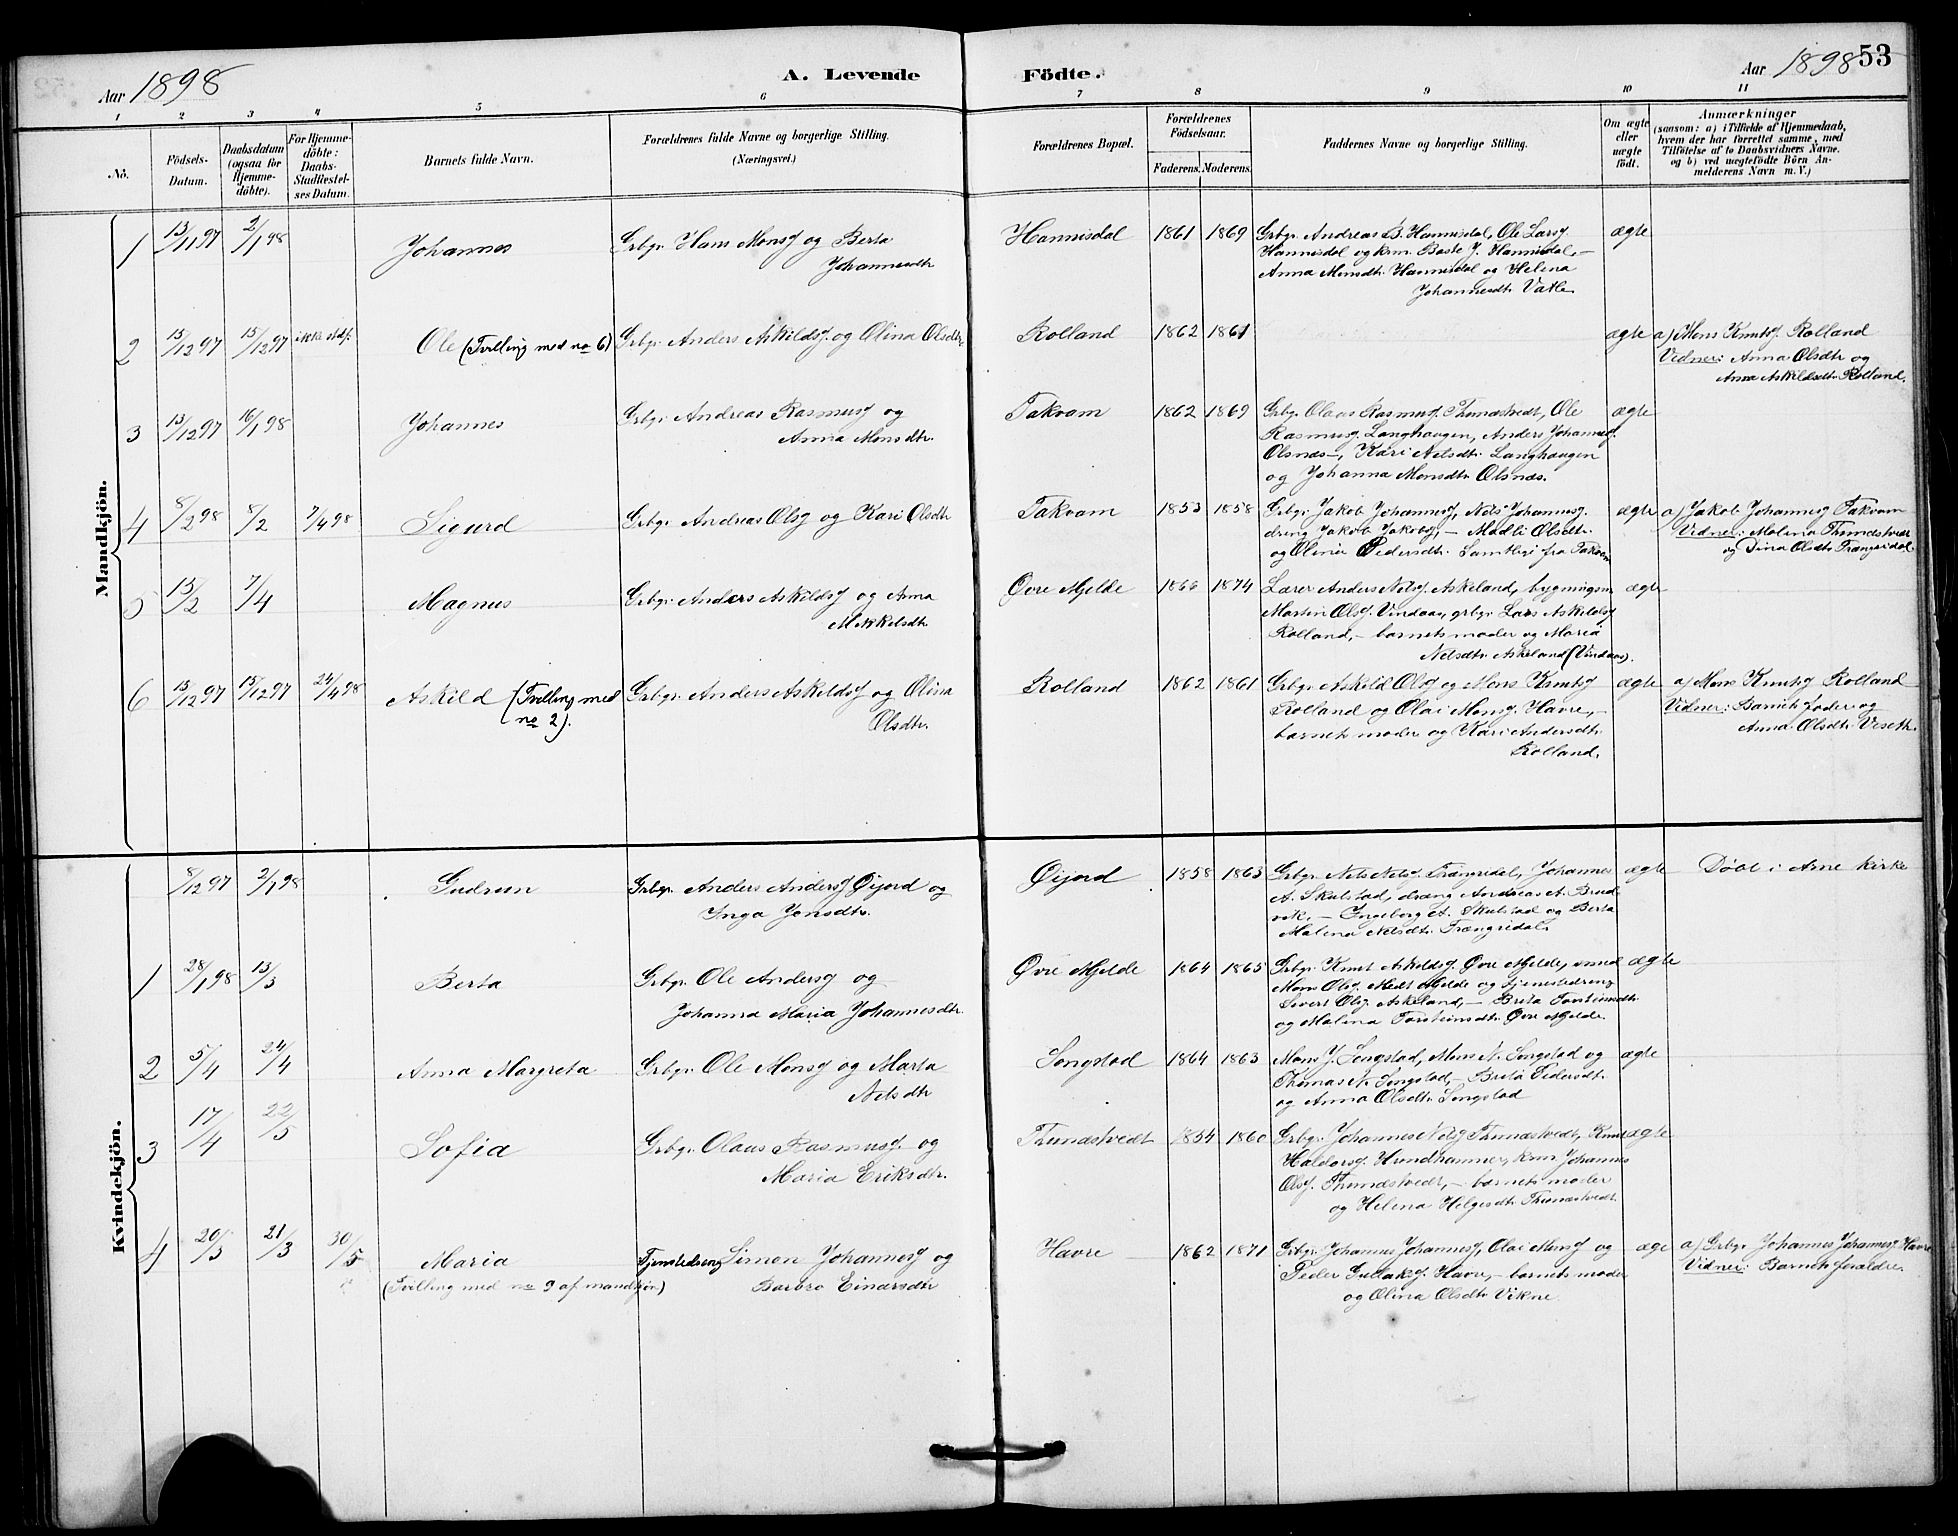 Aar 1898
A. Levende Födte.
Aar 1898
53
1 2 3 4 5 6 7 8 9 10 11
No.
Födsels-Datum.
Daabsdatum (ogsaa for Hjemmedöbte).
For Hjemmedöbte: Daabs-Stadfæstelses Datum.
Barnets fulde Navn.
Forældrenes fulde Navne og borgerlige Stilling. (Næringsvei.)
Forældrenes Bopæl.
Forældrenes Födselsaar.
Faderens. Moderens.
Faddernes Navne og borgerlige Stilling.
Om ægte eller uægte födt.
Anmærkninger
(saasom: a) i Tilfælde af Hjemmedaab,
hvem der har forrettet samme, med
Tilföielse af to Daabsvidners Navne.
og b) ved uægtefödte Börn An-
melderens Navn m. V.)
Mandkjön.
1 13/11 97 2/1 98 Johannes Grbgr. Hans Monsf og Berta
Johannesdtr
Hannisdal 1861 1869 Grbgr. Andreas B. Hannisdal, Ole Larsf
Hannisdal og krm. Baste J. Hannisdal, –
Anna Monsdtr. Hannisdal og Helena
Johannesdtr. Vatle.
ægte
2 13/12 97 15/12 97 ikke stadf. Ole (Tvilling med no 6) Grbgr. Anders Askildsf. og Olina Olsdtr.
Rolland 1862 1861 ægte a) Mons Knutsf Rolland
Vidner: Anna Olsdtr og
Anna Askildsdtr. Rolland.
3 13/12 97 16/1 98 Johannes Grbgr. Andreas Rasmusf og
Anna Monsdtr.
Takvam 1862 1869 Grbgr. Olaus Rasmusf. Thunestvedt, Ole
Rasmusf. Langhaugen, Anders Johannesf.
Olsnes –, Kari Nelsdtr. Langhaugen
og Johanna Monsdtr. Olsnes.
ægte
4 8/2 98 8/2 7/4 98 Sigurd Grbgr. Andreas Olsf og Kari Olsdtr
Takvam 1853 1858 Grbgr. Jakob Johannesf, Nels Johannesf.
dreng Jakob Jakobsf, – Madli Olsdtr.
og Olina Pedersdtr. Samtlige fra Takvam
ægte a) Jakob Johannesf Takvam
Vidner: Malina Thunestvedt
og Dina Olsdtr Trængridal.
5 13/2 7/4 Magnus Grbgr. Anders Askildsf og Anna
Mikkelsdtr.
Øvre Mjelde 1866 1874 Lærer Anders Nelsf. Askeland, bygningsm
Martin Olsf. Vindaas, grbgr. Lars Askildsf
Rolland, – barnets moder og Maria
Nelsdtr. Askeland (Vindaas).
ægte
6 13/12 97 15/12 97 24/4 98 Askild (Tvilling med
no 2). Grbgr. Anders Askildsf og Olina
Olsdtr.
Rolland 1862 1861 Grbgr. Askild Olsf og Mons Knutsf
Rolland og Olai Monsf. Havre, –
barnets moder og Kari Andersdtr.
Rolland.
ægte a) Mons Knutsf Rolland
Vidner: Barnets fader og
Anna Olsdtr. Veseth.
Kvindekjön.
8/12 97 2/1 98 Gudrun Grbgr. Anders Andersf Øijord og
Inga Jensdtr.
Øijord 1858 1863 Grbgr. Nels Nelsf. Trængridal, Johannes
A. Skulstad, dreng Andreas A. Brud-
vik, – Ingeborg A. Skulstad og Berta
Malina Nelsdtr. Trængridal.
ægte Døbt i Arne kirke
1 28/1 98 13/3 Berta Grbgr. Ole Andersf og
Johanna Maria Johannesdtr.
Øvre Mjelde 1864 1865 Grbgr. Knut Askildsf. Øvre Mjelde,
Mons Olsf. Nedre Mjelde og tjenestedreng
Sivert Olsf. Askeland, – Brita Torsteinsdtr.
og Malina Torsteinsdtr. Øvre Mjelde.
ægte
2 5/4 24/4 Anna Margreta Grbgr. Ole Monsf og Marta
Nelsdtr
Songstad 1864 1863 Mons J. Songstad, Mons N. Songstad og
Thomas N. Songstad, – Brita Pedersdtr.
og Anna Olsdtr. Songstad
ægte
3 17/4 22/5 Sofia Grbgr. Olaus Rasmusf. og
Maria Eriksdtr.
Thunestvedt 1854 1860 Grbgr. Johannes Nelsf Thunestvedt, Knut
Haldorsf. Hundhammer, krm. Johannes
Olsf. Thunestvedt, – barnets moder
og Helena Helgesdtr. Thunestvedt.
ægte
4 20/3 21/3 30/5 Maria
(Tvilling med no 9 af mandkjøn) Tjenestedreng Simon Johannesf og
Barbro Einarsdtr
Havre 1862 1871 Grbgr. Johannes Johannesf, Olai Monsf og
Peder Gullaksf. Havre, – barnets moder
og Olina Olsdtr Vikne.
ægte a) Grbgr. Johannes Johannesf. Havre
Vidner: Barnets foreldre.